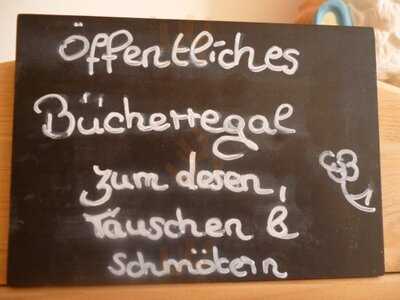 Öffentliches
Bücherregal
zum Lesen,
Tauschen &
Schmökern